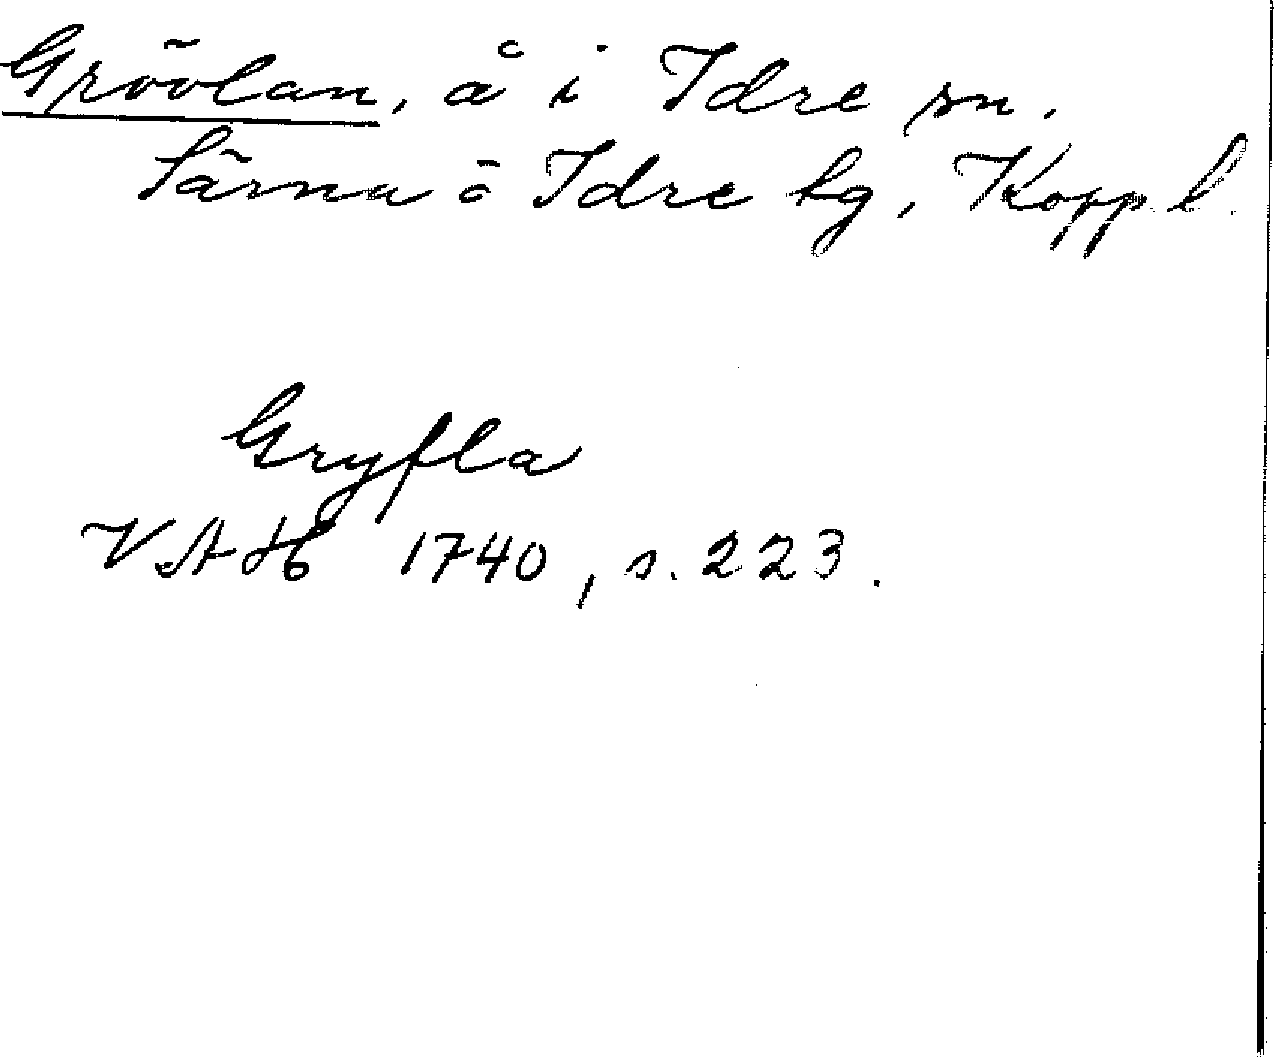 Grövlan, å i Idre sn.
Särna ö Idre tg, Kopp. l.
Gryfla
VAH 1740, s. 223.